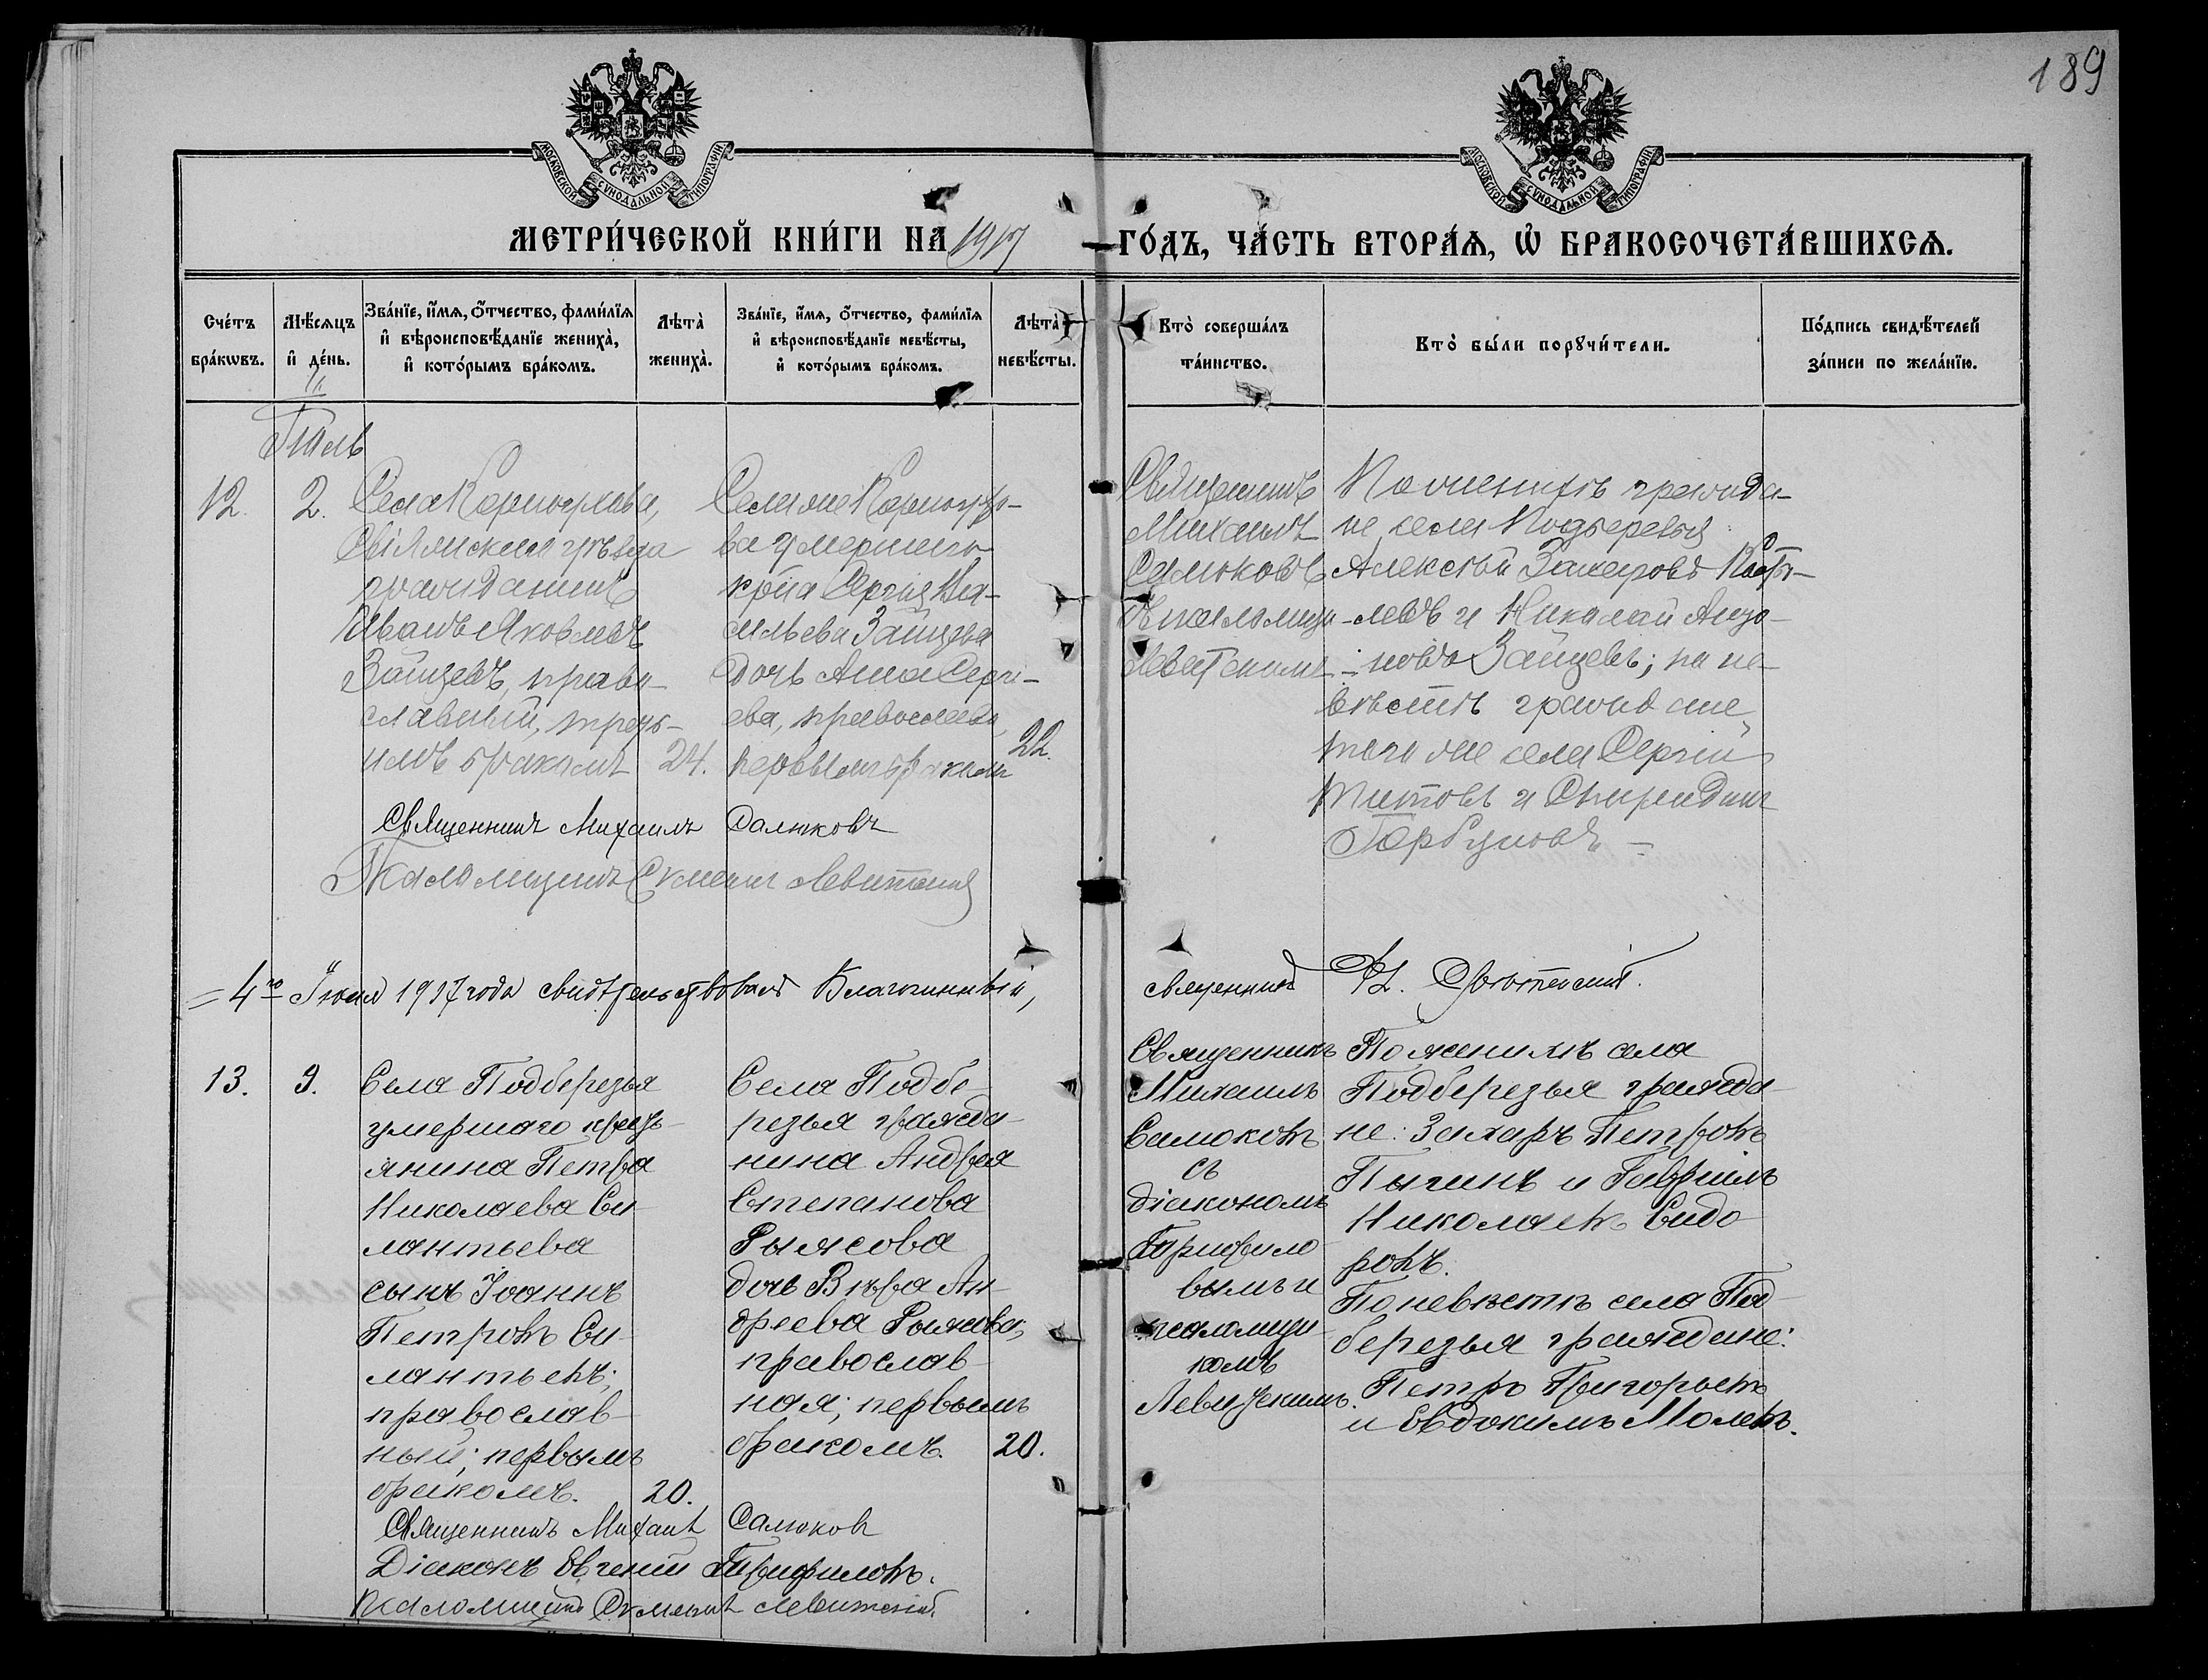 189
МОСКОВСКОЙ СѴНОДАЛЬНОЙ ТИПОГРАФІИ
МОСКОВСКОЙ СѴНОДАЛЬНОЙ ТИПОГРАФІИ
МЕТРИ́ЧЕСКОЙ КНИ́ГИ НА 1917 ГО́ДЪ, ЧА́СТЬ ВТОРА́Ѧ, Ѽ БРАКОСОЧЕТА́ВШИХСѦ.
Сче́тъ бра́кѡвъ.
Мѣ́сяцъ и҆ де́нь.
Зва́нїе, и҆́мѧ, ѻ҆́тчество, фами́лїѧ и҆ вѣроисповѣ́данїе жениха̀, и҆ кото́рымъ бра́комъ.
Лѣта̀ жениха̀.
Зва́нїе, и҆́мѧ, ѻ҆́тчество, фами́лїѧ и҆ вѣроисповѣ́данїе невѣ́сты, и҆ кото́рымъ бра́комъ.
Лѣта̀ невѣ́сты.
Кто̀ соверша́лъ та́инство.
Кто̀ бы́ли порꙋчи́тели.
По́дпись свидѣ́телей за́писи по жела́нїю.
Іюль
12.
2.
Села
уѣзда
гражданинъ
Иванъ Яковлевъ
Зайцевъ, право-
славный, треть-
имъ бракомъ
24.
Села
ва умершего
Сергія Ва-
сильева Зайцева
дочь Анна Серги-
ева, православн
первымъ бракомъ
22.
Священникъ
Михаилъ
Салюковъ
Левитскимъ
По женихѣ гражда-
не села Подберезья
Алексѣй Захаровъ
левъ и Николай
новъ Зайцевъ; по не-
вѣстѣ граждане
того же села Сергій
Титовъ и Спиридонъ
Горбуновъ
Священникъ Михаилъ Салюковъ
Псаломщикъ Левитский
= 4го Іюля 1917 года свидѣтельствовалъ Благочинный, священникъ
13.
9.
Села Подберезья
умершаго кресть-
янина Петра
Николаева Си-
лантьева
сынъ Іоаннъ
Петровъ Си-
лантьевъ;
православ-
ный; первымъ
бракомъ.
20.
Села Подбе-
резья гражда-
нина Андрея
Степанова
Рыжова
дочь Вѣра Ан-
дреева Рыжова,
православ-
ная; первымъ
бракомъ.
20.
Священникъ
Михаилъ
Салюковъ
съ
діакономъ
Трифило-
вымъ и
псаломщи-
комъ
Левитскимъ.
По женихѣ села
Подберезья гражда-
не: Захаръ Петровъ
Пыгинъ и Гавріилъ
Николаевъ Сидо-
ровъ.
По невѣстѣ села Под-
березья граждане:
Петръ Григорьевъ
и Евдокимъ Молевъ.
Священникъ Михаилъ Салюковъ
Діаконъ Евгений Трифиловъ.
Псаломщикъ Левитский